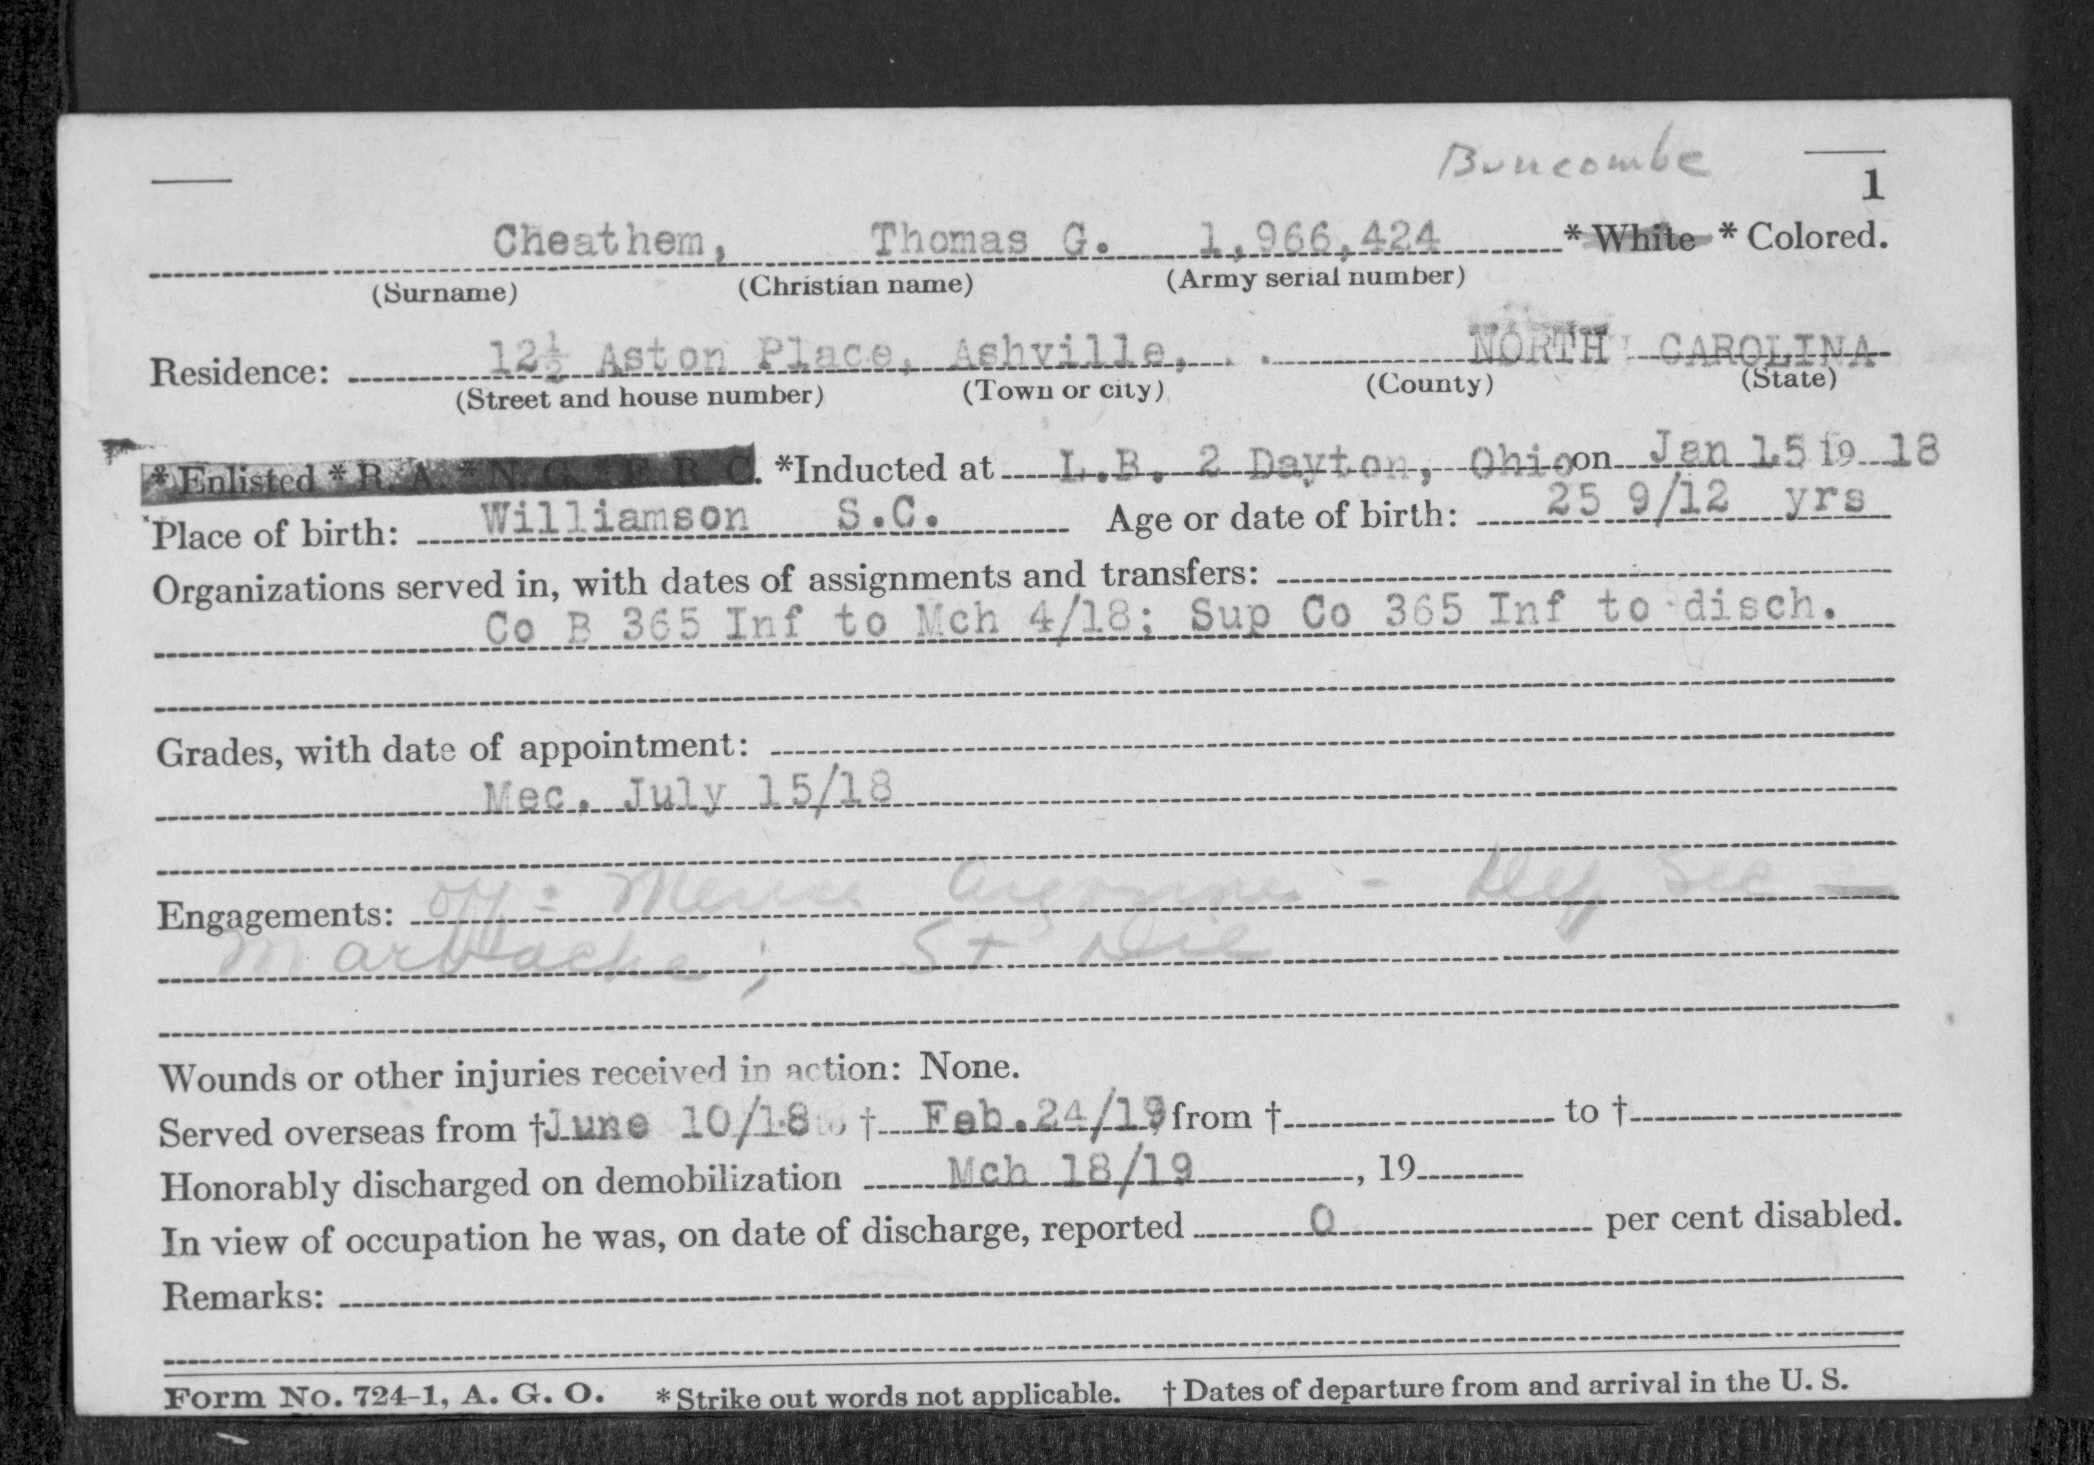 Buncombe
1
Cheathem, Thomas G. 1,966,424 * White * Colored.
(Surname) (Christian name) (Army serial number)
Residence: 12½ Aston Place, Ashville, NORTH CAROLINA
(Street and house number) (Town or city) (County) (State)
*Enlisted *R. A. *N. G. *E. R. C. *Inducted at L.B. 2 Dayton, Ohio on Jan 15 19 18
Place of birth: Williamson S.C. Age or date of birth: 25 9/12 yrs
Organizations served in, with dates of assignments and transfers:
Co B 365 Inf to Mch 4/18; Sup Co 365 Inf to disch.
Grades, with date of appointment:
Mec. July 15/18
Engagements: Off = Meuse Argonne - Def Sec —
Marbache; St Die
Wounds or other injuries received in action: None.
Served overseas from † June 10/18 to † Feb. 24/19, from † to †
Honorably discharged on demobilization Mch 18/19, 19
In view of occupation he was, on date of discharge, reported 0 per cent disabled.
Remarks:
Form No. 724-1, A. G. O. *Strike out words not applicable. † Dates of departure from and arrival in the U. S.